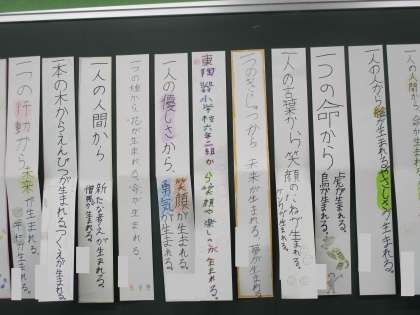 一人の人から絵が生まれる。やさしさが生まれる。
一つの命から
虎が生まれる。
鳥が生まれる。
一人の言葉から笑顔のたねが生まれる。
ケンカが生まれる。
一つのぎじゅつから 未来が生まれる。夢が生まれる。
東陶器小学校六年二組から笑顔や楽しみが生まれる。
一人の優しさから、
笑顔が生まれる。
勇気が生まれる。
一つの種から 花が生まれる。命が生まれる。
一人の人間から
新たな考えが生まれる。
憎悪が生まれる。
一本の木からえんぴつが生まれるつくえが生まれる。
一つの行動から未来が生まれる。